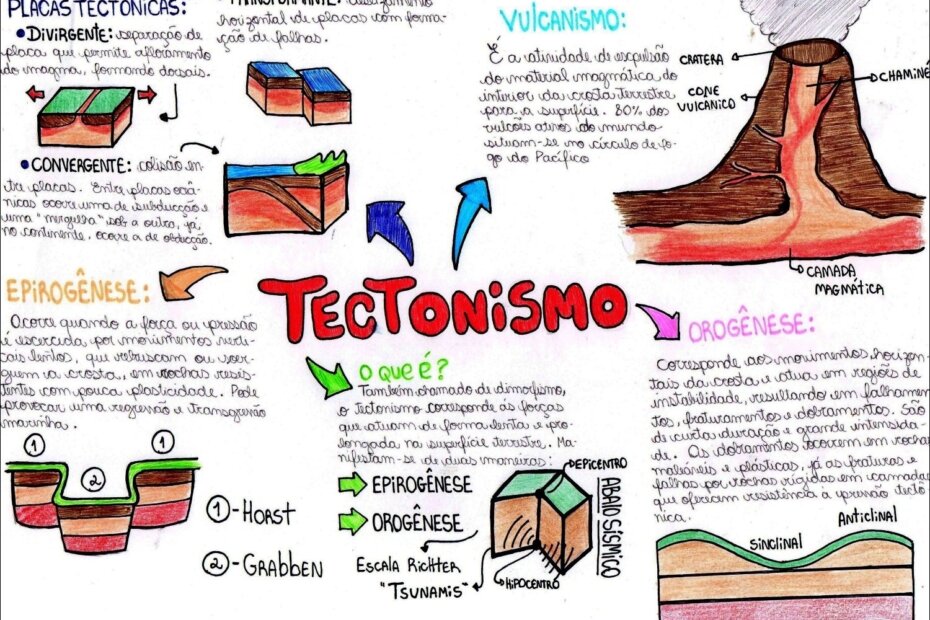 PLACAS TECTÔNICAS:
• DIVERGENTE: separação de
placa que permite afloramento
do magma, formando dorsais.
• CONVERGENTE: colisão en-
tre placas. Entre placas oceâ-
nicas ocorre uma de subducção e
uma "mergulha" sob a outra, já,
no continente, ocorre a de obducção.
horizontal de placas com forma-
ção de falhas.
VULCANISMO:
É a atividade de expulsão
do material magmático do
interior da crosta terrestre
para a superfície. 80% dos
vulcões ativos do mundo
situam-se no círculo de fo-
go do Pacífico
CRATERA
CONE
VULCANICO
CHAMINÉ
CAMADA
MAGMÁTICA
TECTONISMO
EPIROGÊNESE:
Ocorre quando a força ou pressão
é exercida por movimentos verti-
cais lentos, que rebuscam ou soer-
guem a crosta, em rochas resis-
tentes com pouca plasticidade. Pode
provocar uma regressão e transgressão
marinha.
1
1
2
1 - HORST
2 - GRABBEN
O QUE É?
Também chamado de dimorfismo,
o tectonismo corresponde às forças
que atuam de forma lenta e pro-
longada na superfície terrestre. Ma-
nifestam-se de duas maneiras:
EPIROGÊNESE
OROGÊNESE
ESCALA RICHTER
"TSUNAMIS"
EPICENTRO
HIPOCENTRO
ABALO SÍSMICO
OROGÊNESE:
Corresponde aos movimentos horizon-
tais da crosta e atua em regiões de
instabilidade, resultando em falhamen-
tos, fraturamentos e dobramentos. São
de curta duração e grande intensida-
de. Os dobramentos ocorrem em rochas
maleáveis e plásticas, já as fraturas e
falhas por rochas rígidas em camadas
que oferecem resistência à pressão tectô
nica.
SINCLINAL
ANTICLINAL